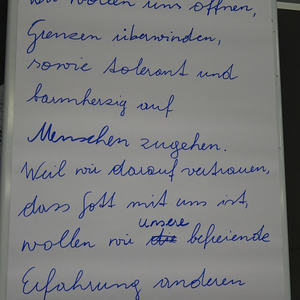 wir wollen uns öffnen,
Grenzen überwinden,
sowie tolerant und
barmherzig auf
Menschen zugehen.
Weil wir darauf vertrauen,
dass Gott mit uns ist,
unsere
wollen wir die befreiende
Erfahrung anderen